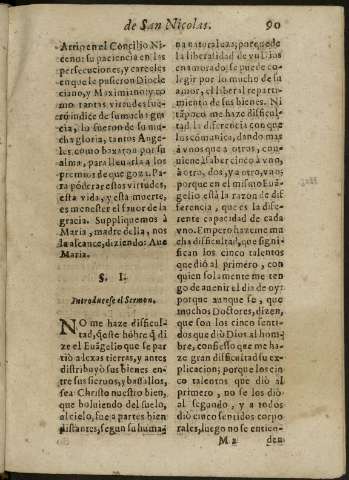 de San Nicolas.
90
Arrio en el Concilio Ni-
ceno: su paciencia en las
persecuciones, y carceles
en que le pusieron Diocle
ciano, y Maximiano: y co
mo tantas virtudes fue-
rõ indice de su mucha gra
cia, lo fueron de su mu-
cha gloria, tantos Ange-
les como baxaron por su
alma, para lleuarla a los
premios de que goza. Pa-
ra põderar estas virtudes,
esta vida, y esta muerte,
es menester el fauor de la
gracia. Suppliquemos à
Maria, madre della, nos
la alcance, diziendo: Aue
Maria.
§. I.
Introducese el Sermon.
NO me haze dificul-
tad, q̃ este hõbre q̃ di
ze el Euãgelio que se par
tiò a lexas tierras, y antes
distribuyò sus bienes en-
tre sus sieruos, y vassallos,
sea Christo nuestro bien,
que boluiendo del suelo,
al cielo, fue a partes bien
distantes, segun su huma-
na naturaleza; porque de
la liberalidad de vn Dios
enamorado, se puede co-
legir por lo mucho de su
amor, el liberal reparti-
miento de sus bienes. Ni
tãpoco me haze dificul-
tad, la diferencia con que
los comunicò, dando mas
à vnos que a otros, con-
uiene à saber cinco à vno,
à otro, dos, y a otro, vno;
porque en el mismo Euã-
gelio està la razon de dif
ferencia, que es la dife-
rente capacidad de cada
vno. Empero hazeme mu
cha dificultad, que signi-
fican los cinco talentos
que diò al primero, con
quien solamente me ten-
go de auenir el dia de oy:
porque aunque se, que
muchos Doctores, dizen,
que son los cinco senti-
dos que diò Dios al hom-
bre, confiesso que me ha-
ze gran dificultad su ex-
plicacion; porque los cin-
co talentos que diò al
primero, no se los diò
al segundo, y a todos
diò cinco sentidos corpo-
rales, luego no se entien-
M 2
den